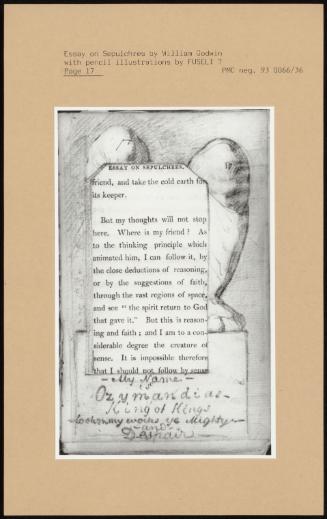 Essay on Sepulchres by William Godwin
with pencil illustrations by FUSELI ?
Page 17 PMC neg. 93 0066/36
ESSAY ON SEPULCHRES. 17
friend, and take the cold earth for
its keeper.
But my thoughts will not stop
here. Where is my friend? As
to the thinking principle which
animated him, I can follow it, by
the close deductions of reasoning,
or by the suggestions of faith,
through the vast regions of space,
and see “ the spirit return to God
that gave it.” But this is reason-
ing and faith; and I am to a con-
siderable degree the creature of
sense. It is impossible therefore
that I should not follow by sense
- My Name -
Ozymandias -
King of Kings
Look on my works, ye Mighty -
- and -
Despair -